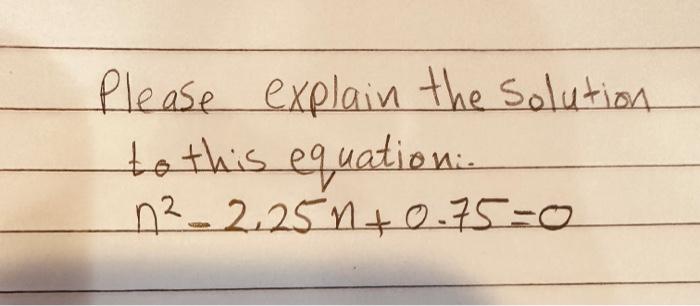 Please explain the Solution
to this equation:-
n² - 2.25n + 0.75 = 0